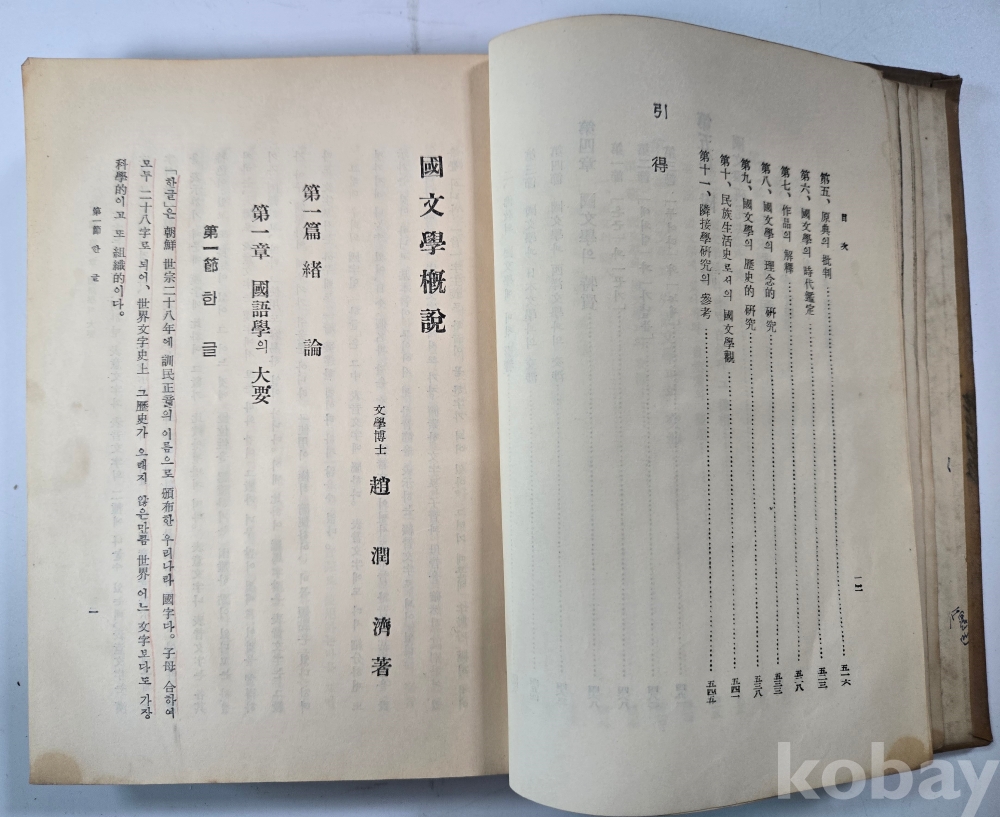 目次
第五、原典의 批判……五一六
第六、國文學의 時代鑑定……五二三
第七、作品의 解釋……五二八
第八、國文學의 理念的 硏究……五三三
第九、國文學의 歷史的 硏究……五三八
第十、民族生活史로서의 國文學觀……五四一
第十一、隣接學硏究의 參考……五四五
引得
一二
國文學槪說
文學博士 趙潤濟 著
第一篇 緖論
第一章 國語學의 大要
第一節 한글
「한글」은 朝鮮 世宗二十八年에 訓民正音의 이름으로 頒布한 우리나라 國字다。子母 合하여
모두 二十八字로 되어、世界文字史上 그 歷史가 오래지 않은만큼 世界 어느 文字보다도 가장
科學的이고 또 組織的이다。
第一節 한글
一
kobay